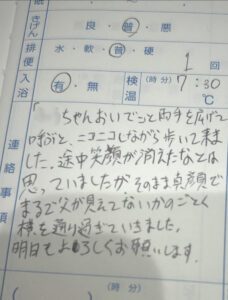 きげん 良・普・悪
排便 水・軟・普・硬 1回
入浴 有・無 検温 (時分) 7:30 ℃
連絡事項
「 ちゃんおいでーっと両手を広げて
呼ぶと、ニコニコしながら歩いて来ま
した。途中笑顔が消えたなとは
思っていましたがそのまま真顔で
まるで父が見えてないかのごとく
横を通り過ぎていきました。
明日もよろしくお願いします。
(時分)